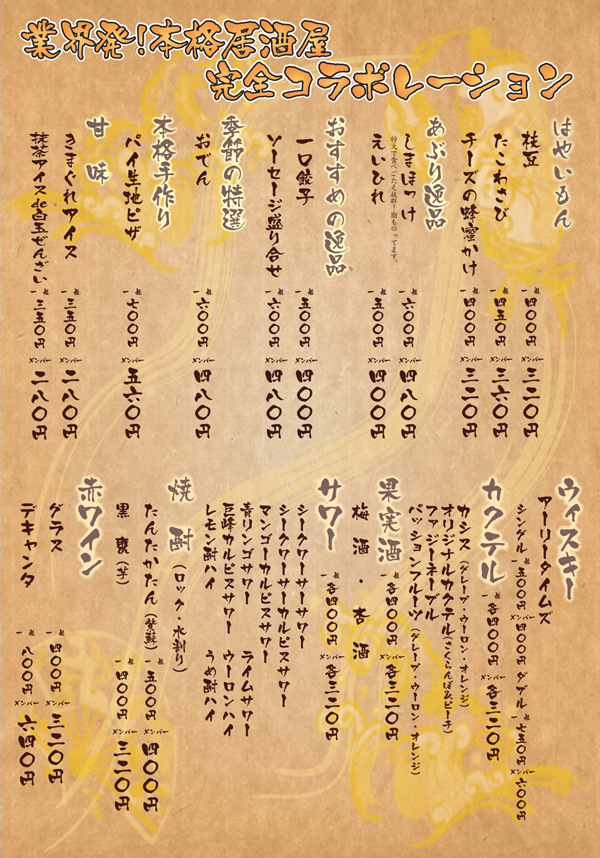 業界発!本格居酒屋
完全コラボレーション
はやいもん
枝豆 一般 四〇〇円 メンバー 三二〇円
たこわさび 一般 四五〇円 メンバー 三六〇円
チーズの蜂蜜かけ 一般 四〇〇円 メンバー 三二〇円
あぶり逸品
しまほっけ 一般 六〇〇円 メンバー 四八〇円
特大で食べごたえ抜群!脂ものってます。
えいひれ 一般 五〇〇円 メンバー 四〇〇円
おすすめの逸品
一口餃子 一般 五〇〇円 メンバー 四〇〇円
ソーセージ盛り合せ 一般 六〇〇円 メンバー 四八〇円
季節の特選
おでん 一般 六〇〇円 メンバー 四八〇円
本格手作り
パイ生地ピザ 一般 七〇〇円 メンバー 五六〇円
甘味
きまぐれアイス 一般 三五〇円 メンバー 二八〇円
抹茶アイスde白玉ぜんざい 一般 三五〇円 メンバー 二八〇円
ウィスキー
アーリータイムズ
シングル 一般 五〇〇円 メンバー 四〇〇円 ダブル 一般 七五〇円 メンバー 六〇〇円
カクテル 一般 各四〇〇円 メンバー 各三二〇円
カシス(グレープ・ウーロン・オレンジ)
オリジナルカクテル(さくらんぼ&ピーチ)
ファジーネーブル
パッションフルーツ(グレープ・ウーロン・オレンジ)
果実酒 一般 各四〇〇円 メンバー 各三二〇円
梅酒・杏酒
サワー 一般 各四〇〇円 メンバー 各三二〇円
シークワーサーサワー
シークワーサーカルピスサワー
マンゴーカルピスサワー
青リンゴサワー ライムサワー
巨峰カルピスサワー ウーロンハイ
レモン酎ハイ うめ酎ハイ
焼酎(ロック・水割り)
たんたかたん(紫蘇) 一般 五〇〇円 メンバー 四〇〇円
黒甕(芋) 一般 四〇〇円 メンバー 三二〇円
赤ワイン
グラス 一般 四〇〇円 メンバー 三二〇円
デキャンタ 一般 八〇〇円 メンバー 六四〇円